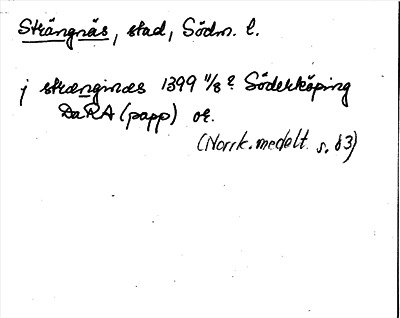 Strängnäs, stad, Södm. l.
j strænginæs 1399 11/8 ? Söderköping
DaRA (papp) or.
(Norrk. medelt. s. 83)